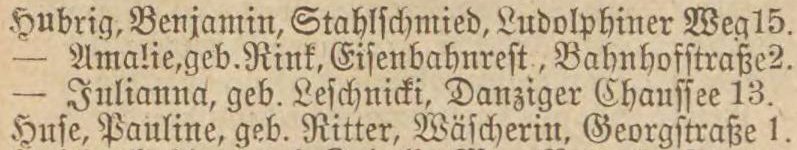 Hubrig, Benjamin, Stahlschmied, Ludolphiner Weg 15.
— Amalie, geb. Rink, Eisenbahnrest., Bahnhofstraße 2.
— Julianna, geb. Leschnicki, Danziger Chaussee 13.
Huse, Pauline, geb. Ritter, Wäscherin, Georgstraße 1.